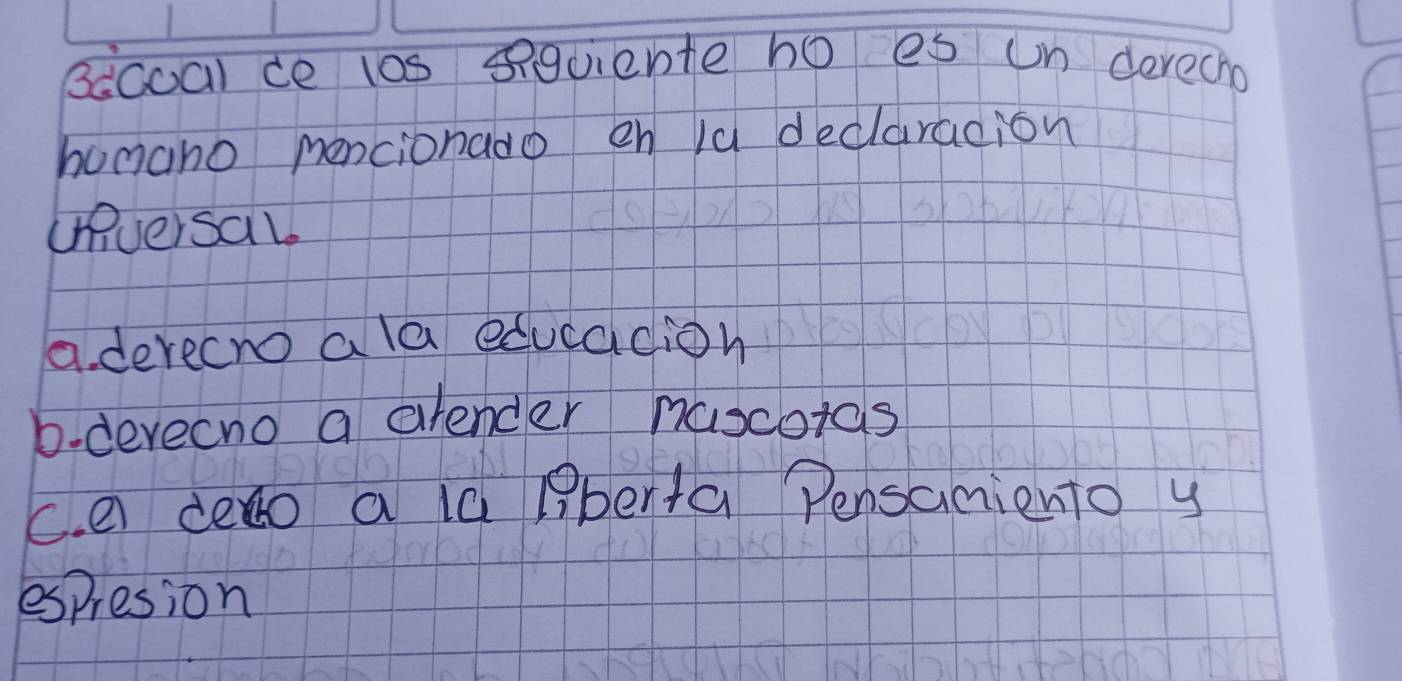 3¿Cual de los siguiente no es un derecho
humano mencionado en la declaracion
universal.
a.derecho a la educacion
b.derecho a atender mascotas
c.el a la liberta Pensamiento y
espresion